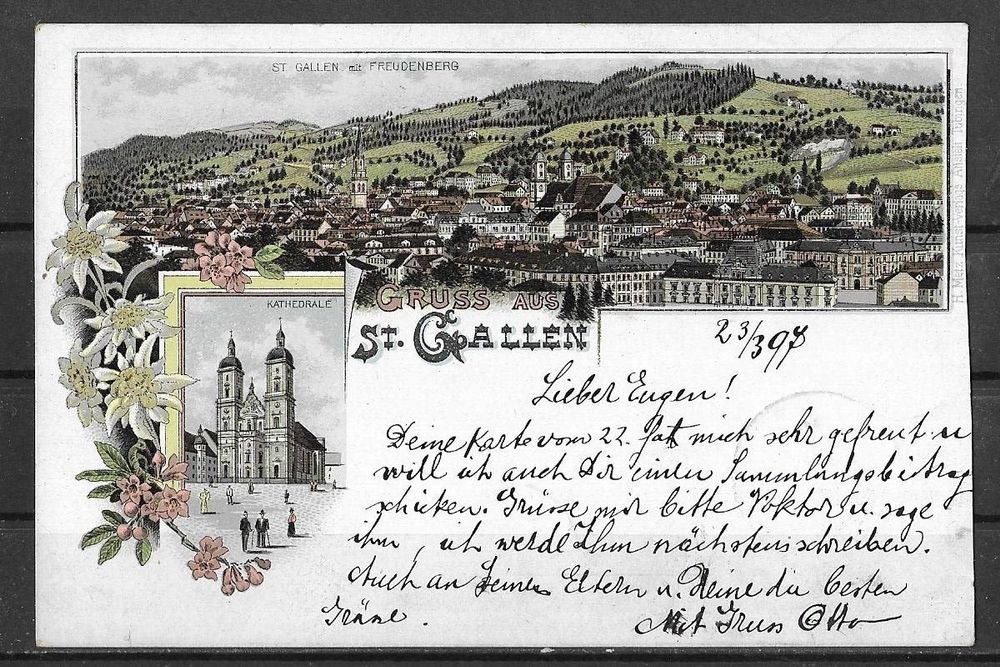 ST GALLEN mit FREUDENBERG
H. Metz, Kunst-Verlags-Anstalt Tübingen
KATHEDRALE
GRUSS AUS
ST. GALLEN
23/3 97
Lieber Eugen!
Deine Karte vom 22. hat mich sehr gefreut u
will ich auch Dir einen Sammlungsbeitrag
schicken. Grüsse mir bitte Doktor u. sage
ihm, ich werde Ihm nächstens schreiben.
Auch an Deine Eltern u. Deine die besten
Grüsse.
Mit Gruss Otto